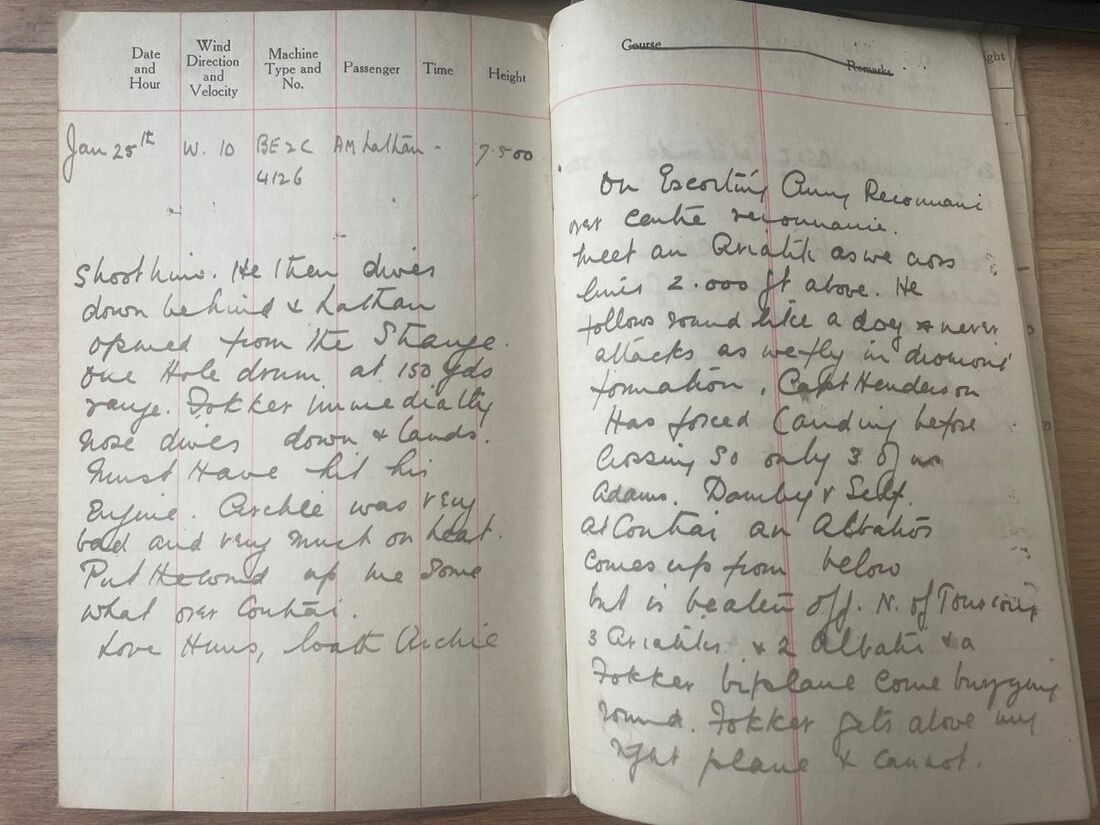 Date and Hour
Wind Direction and Velocity
Machine Type and No.
Passenger
Time
Height
Jan 25th W. 10 BE2C AM Lathan - 7.500
4126
Shoot him. He then dives
down behind & Lathan
opened from the Strange.
One Hole drum at 150 yds
range. Fokker immediatly
nose dives down & lands.
Must Have hit his
Engine. Archie was very
bad and very much on heat.
Put the wind up me some
what over Coutrai.
Love Huns, loath Archie
Course
Remarks
On Escorting Army Reconnani
over centre reconnanie.
Meet an Aviatik as we cross
lines 2.000 ft above. He
follows round like a dog & never
attacks as we fly in diamond
formation. Capt Henderson
Has forced landing before
crossing so only 3 of us
Adams. Danby & Self.
At Coutrai an Albatros
comes up from below
but is beaten off. N. of Tourcoing
3 Aviatiks & 2 Albatri & a
Fokker biplane come buzzing
round. Fokker gets above my
right plane & cannot.
ight